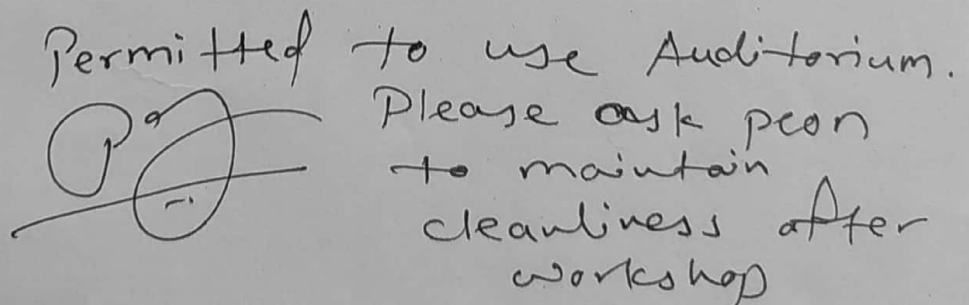 Permitted to use Auditorium.
Please ask peon
to maintain
cleanliness after
workshop